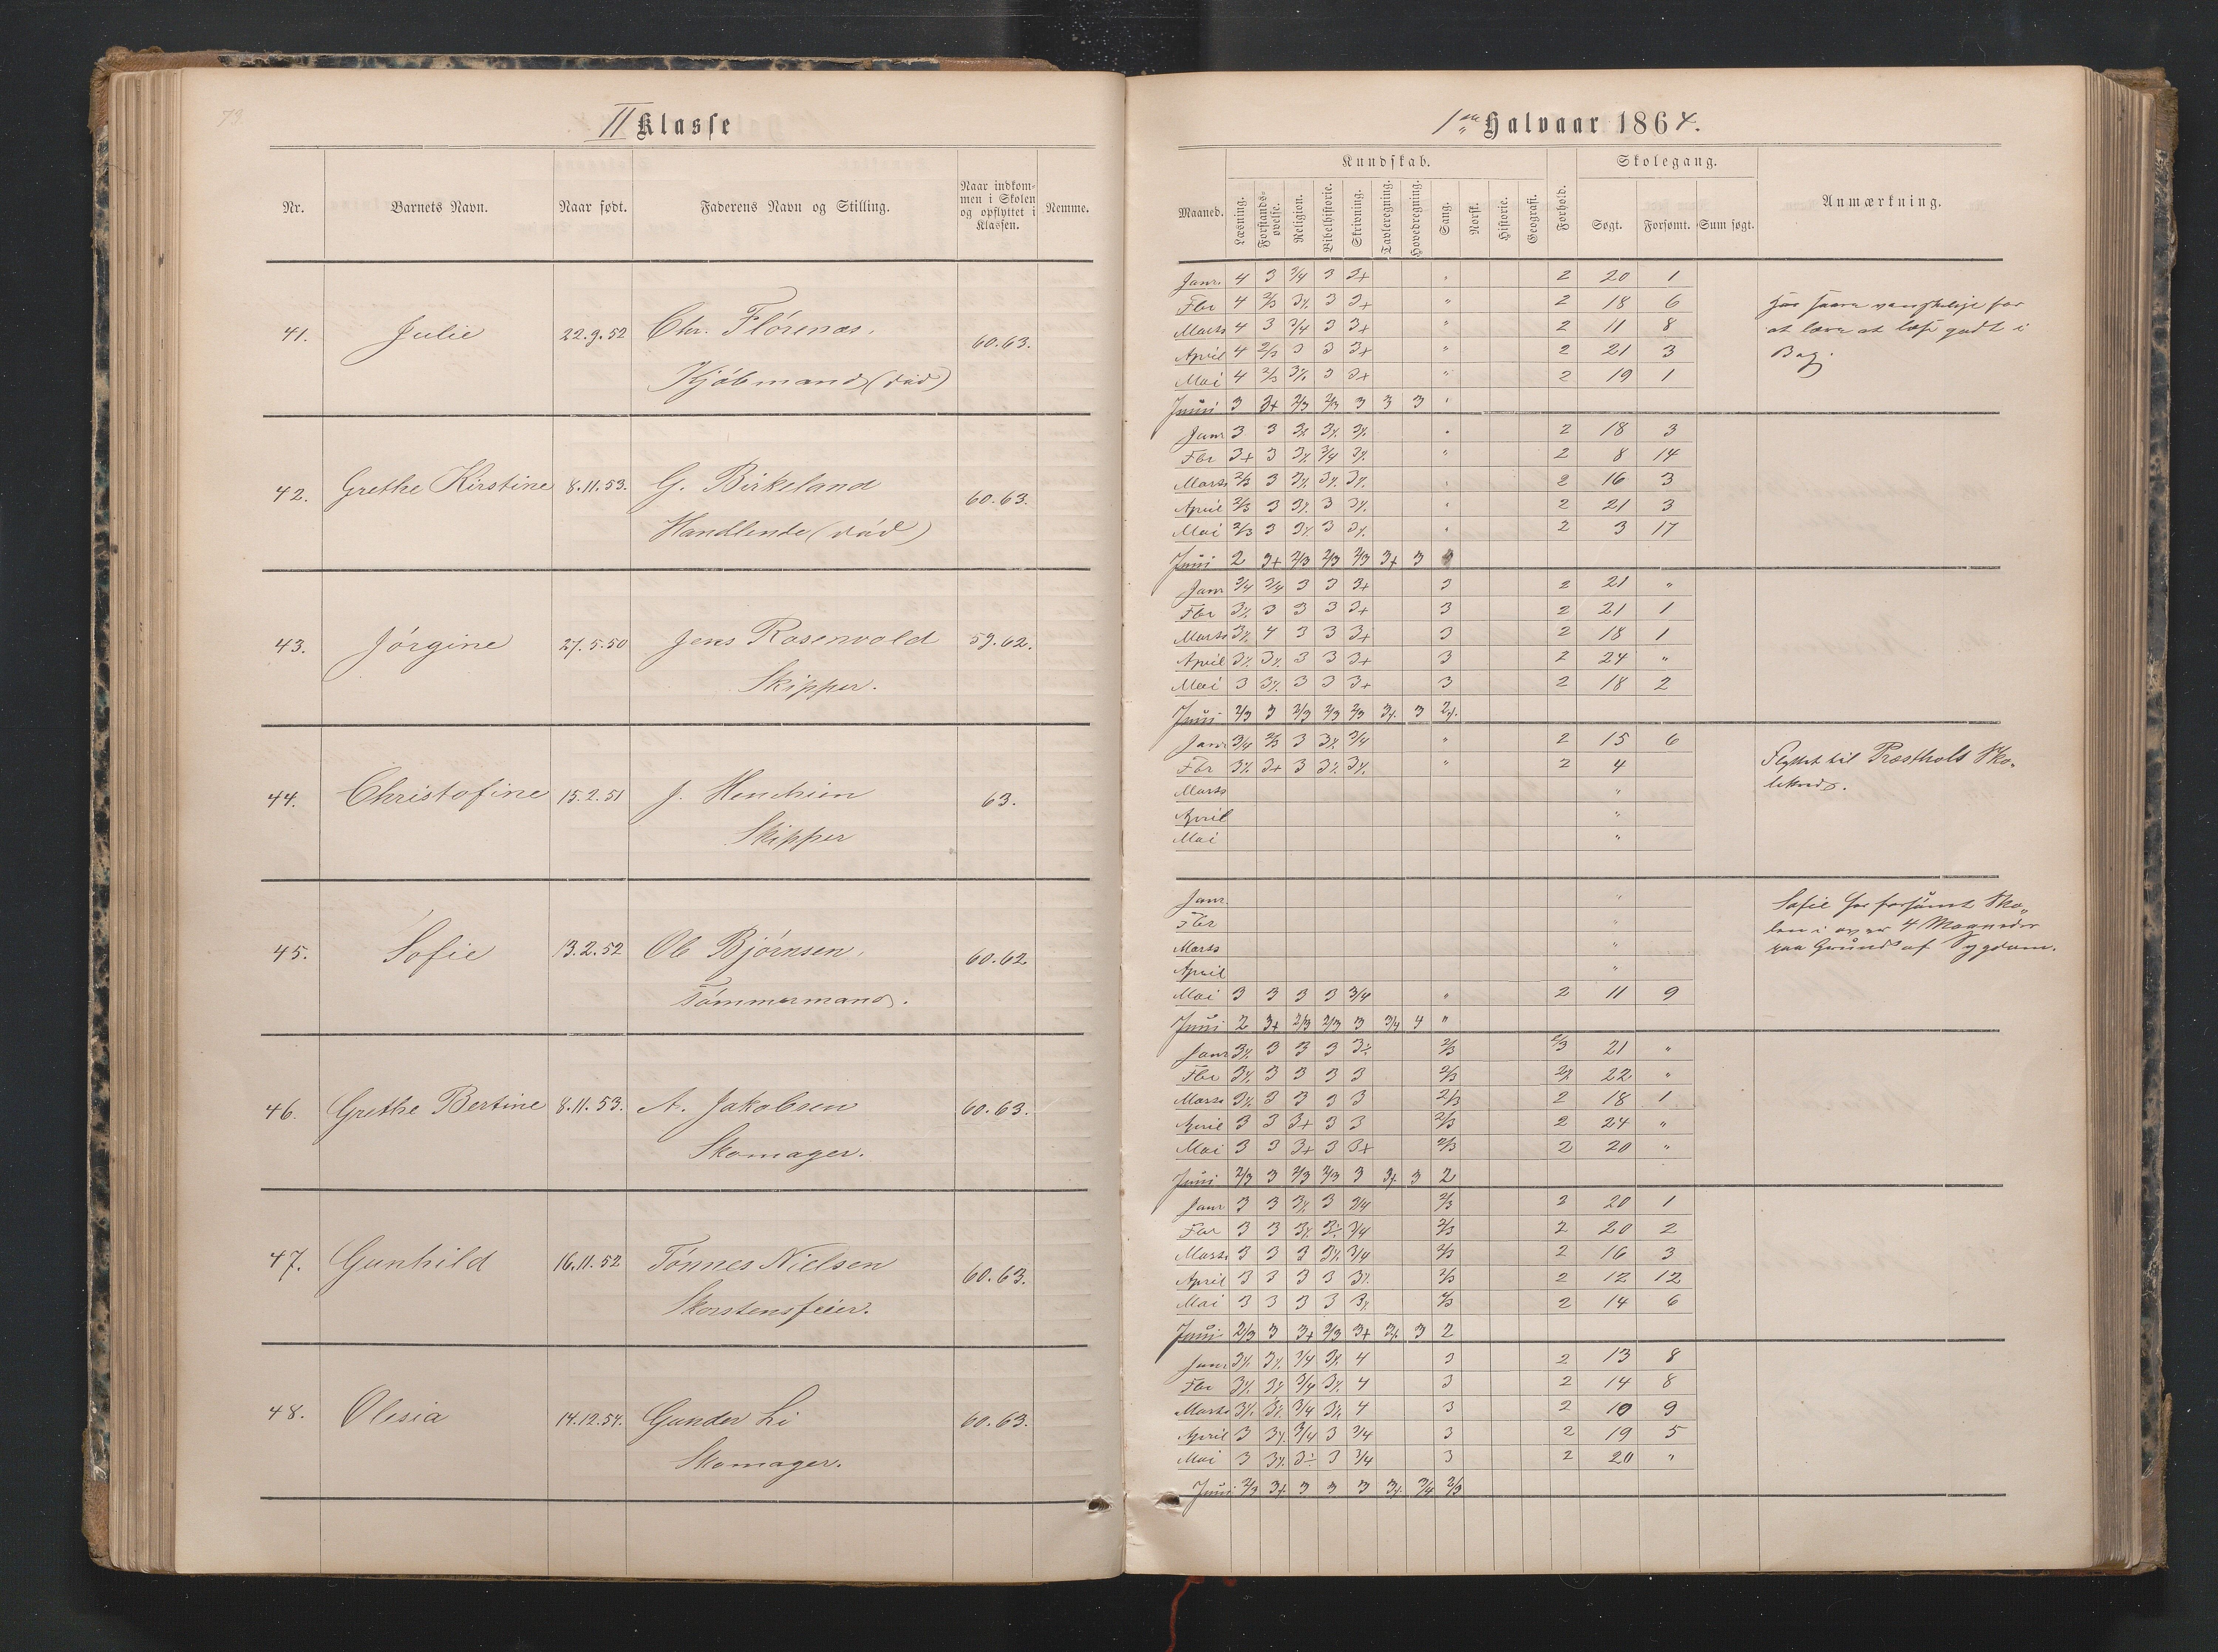 73
II Klasse
Nr. Barnets Navn. Naar født. Faderens Navn og Stilling. Naar indkom-
men i Skolen
og opflyttet i
Klassen. Nemme.
41. Julie 22.9.52 Chr. Flörenæs, 60.63.
Kjöbmand (död)
42. Grethe Kirstine 8.11.53. G. Birkeland 60.63.
Handlende (död)
43. Jörgine 27.5.50 Jens Rosenvold 59.62.
Skipper.
44. Christofine 15.2.51 J. 63.
Skipper
45. Sofie 13.2.52 Ole Björnsen, 60.62
Tömmermand.
46. Grethe Bertine 8.11.53. A. Jakobsen 60.63.
Skomager.
47. Gunhild 16.11.52 Tönnes Nielsen 60.63.
Skorstensfeier.
48. Olesia 14.12.54. Gunder Li 60.63.
Skomager.
1ste Halvaar 1864.
Kundskab. Skolegang.
Maaned. Læsning. Forstands-
øvelse. Religion. Bibelhistorie. Skrivning. Tavleregning. Hovedregning. Sang. Norsk. Historie. Geografi. Forhold. Søgt. Forsømt. Sum søgt. Anmærkning.
Janr. 4 3 3/4 3 3+ " 2 20 1
Fbr 4 2/3 3% 3 3+ " 2 18 6
Marts 4 3 3/4 3 3+ " 2 11 8
April 4 2/3 3 3 3+ " 2 21 3
Mai 4 2/3 3% 3 3+ " 2 19 1
Juni 3 3+ 2/3 2/3 3 3 3 "
har svært vanskelige for
at lære at læse godt i
Bog.
Janr 3 3 3% 3% 3% " 2 18 3
Fbr 3+ 3 3% 3/4 3% " 2 8 14
Marts 2/3 3 3% 3% 3% " 2 16 3
April 2/3 3 3% 3 3% " 2 21 3
Mai 2/3 3 3% 3 3% " 2 3 17
Juni 2 3+ 2/3 2/3 2/3 3+ 3
Janr 3/4 3/4 3 3 3+ 3 2 21 "
Fbr 3% 3 3 3 3+ 3 2 21 1
Marts 3% 4 3 3 3+ 3 2 18 1
April 3% 3% 3 3 3+ 3 2 24 "
Mai 3 3% 3 3 3+ 3 2 18 2
Juni 2/3 3 2/3 2/3 2/3 3% 3 2%
Janr 3/4 2/3 3 3% 3/4 " 2 15 6
Fbr 3% 3+ 3 3% 3% " 2 4
Marts "
April "
Mai "
Flyttet til Præstholt Sko-
lekreds.
Janr. "
Fbr "
Marts "
April "
Mai 3 3 3 3 3/4 " 2 11 9
Juni 2 3+ 2/3 2/3 3 3/4 4 "
Sofie har forsömt Sko-
len i over 4 Maaneder
paa Grund af Sygdom.
Janr 3% 3 3 3 3÷ 2/3 2/3 21 "
Fbr 3% 3 3 3 3 2/3 2% 22 "
Marts 3% 3 3 3 3 2/3 2 18 1
April 3 3 3+ 3 3 2/3 2 24 "
Mai 3 3 3+ 3 3+ 2/3 2 20 "
Juni 2/3 3 2/3 2/3 3 3% 3 2
Janr 3 3 3% 3 3/4 2/3 2 20 1
Fbr 3 3 3% 3÷ 3/4 2/3 2 20 2
Marts 3 3 3 3% 3/4 2/3 2 16 3
April 3 3 3 3 3% 2/3 2 12 12
Mai 3 3 3 3 3% 2/3 2 14 6
Juni 2/3 3 3+ 2/3 3+ 3% 3 2
Janr 3% 3% 3/4 3% 4 3 2 13 8
Fbr 3% 3% 3/4 3% 4 3 2 14 8
Marts 3% 3% 3/4 3% 4 3 2 10 9
April 3 3% 3/4 3 3/4 3 2 19 5
Mai 3 3% 3÷ 3 3/4 3 2 20 "
Juni 2/3 3+ 3 3 3 3% 3/4 2/3